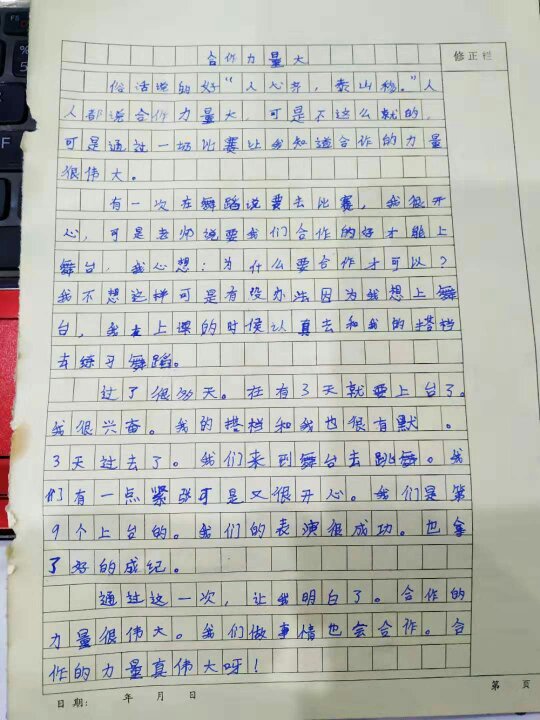 合作力量大
修正栏
俗话说的好“人心齐，泰山移。”人
人都说合作力量大，可是不这么就的，
可是通过一场比赛让我知道合作的力量
很伟大。
有一次在舞蹈说要去比赛，我很开
心，可是老师说要我们合作的好才能上
舞台，我心想：为什么要合作才可以？
我不想这样可是有没办法因为我想上舞
台，我在上课的时候认真去和我的搭档
去练习舞蹈。
过了很多天。在有3天就要上台了。
我很兴奋。我的搭档和我也很有默 。
3天过去了。我们来到舞台去跳舞。我
们有一点紧张可是又很开心。我们是第
9个上台的。我们的表演很成功。也拿
了好的成纪。
通过这一次，让我明白了。合作的
力量很伟大。我们做事情也会合作。合
作的力量真伟大呀！
日期： 年 月 日
第 页